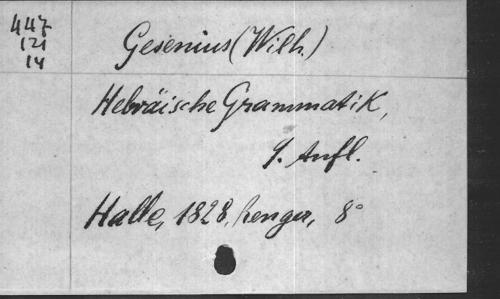 447
121
14
Gesenius (Wilh.)
Hebräische Grammatik,
9. Aufl.
Halle, 1828, Renger, 8°